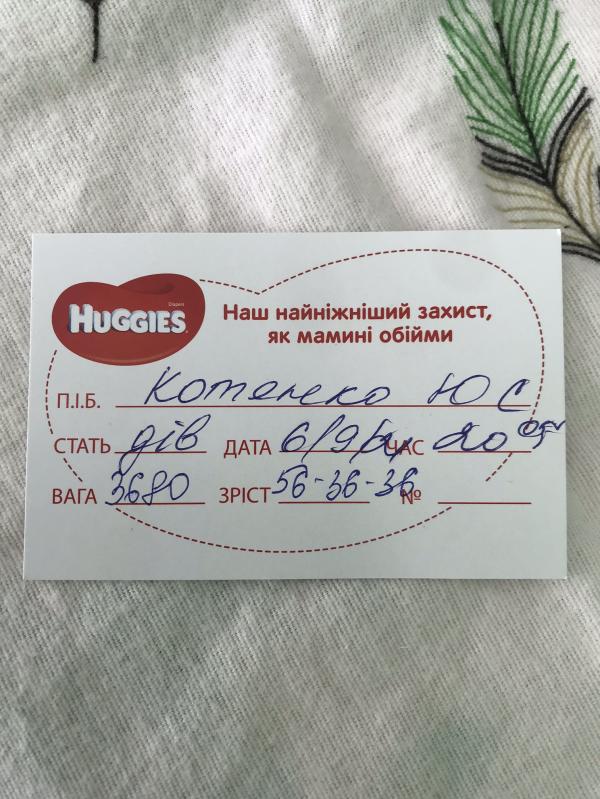 Diapers
HUGGIES
Наш найніжніший захист,
як мамині обійми
П.І.Б. Котенко Ю С
СТАТЬ дів ДАТА 6/9/ ЧАС 20
ВАГА 3680 ЗРІСТ 56-36-36 №